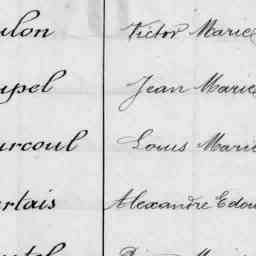 ulon Victor Marie
upel Jean Marie
urcoul Louis Marie
rtais Alexandre Edou